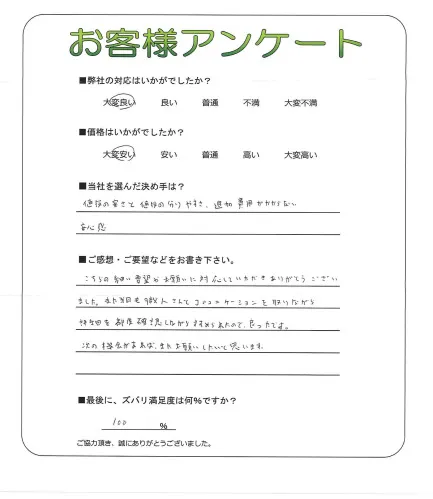 お客様アンケート
■弊社の対応はいかがでしたか？
大変良い 良い 普通 不満 大変不満
■価格はいかがでしたか？
大変安い 安い 普通 高い 大変高い
■当社を選んだ決め手は？
値段の安さと値段の分りやすさ、追加費用がかからない
安心感
■ご感想・ご要望などをお書き下さい。
こちらの細い要望やお願いに対応していただきありがとうござい
ました。また当日も職人さんとコミュニケーションを取りながら
都度確認しながらすすめられたので、良かったです。
次の機会があれば、またお願いしたいと思います。
■最後に、ズバリ満足度は何％ですか？
100 %
ご協力頂き、誠にありがとうございました。